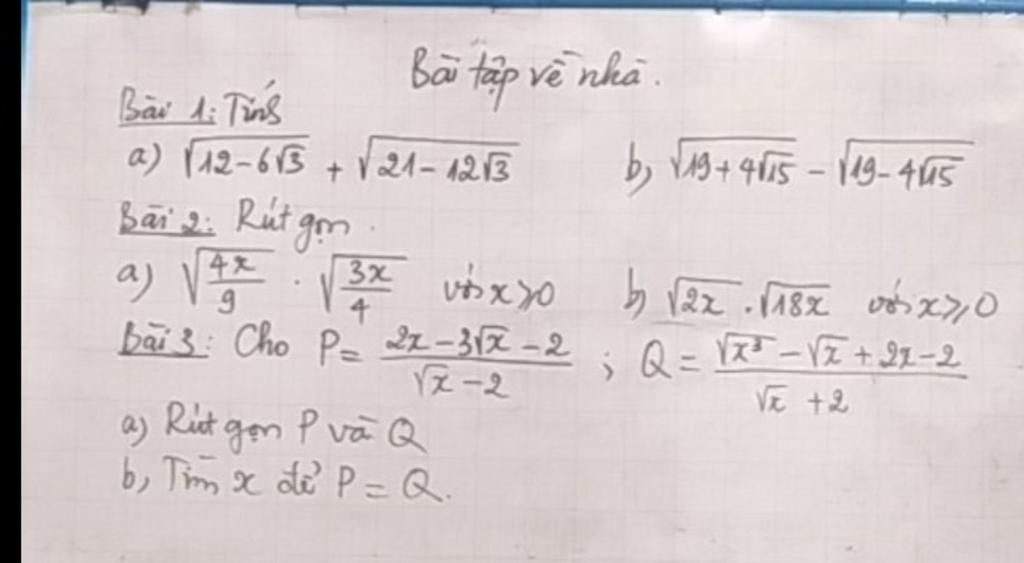 Bài tập về nhà.
Bài 1: Tính
a) √(12-6√3) + √(21-12√3) b, √(19+4√15) - √(19-4√15)
Bài 2: Rút gọn.
a) √(4x/9) . √(3x/4) với x≥0 b) √(2x) . √(18x) với x≥0
Bài 3: Cho P = (2x-3√x-2)/(√x-2) ; Q = (√(x³)-√x+2x-2)/(√x+2)
a) Rút gọn P và Q
b, Tìm x để P = Q.